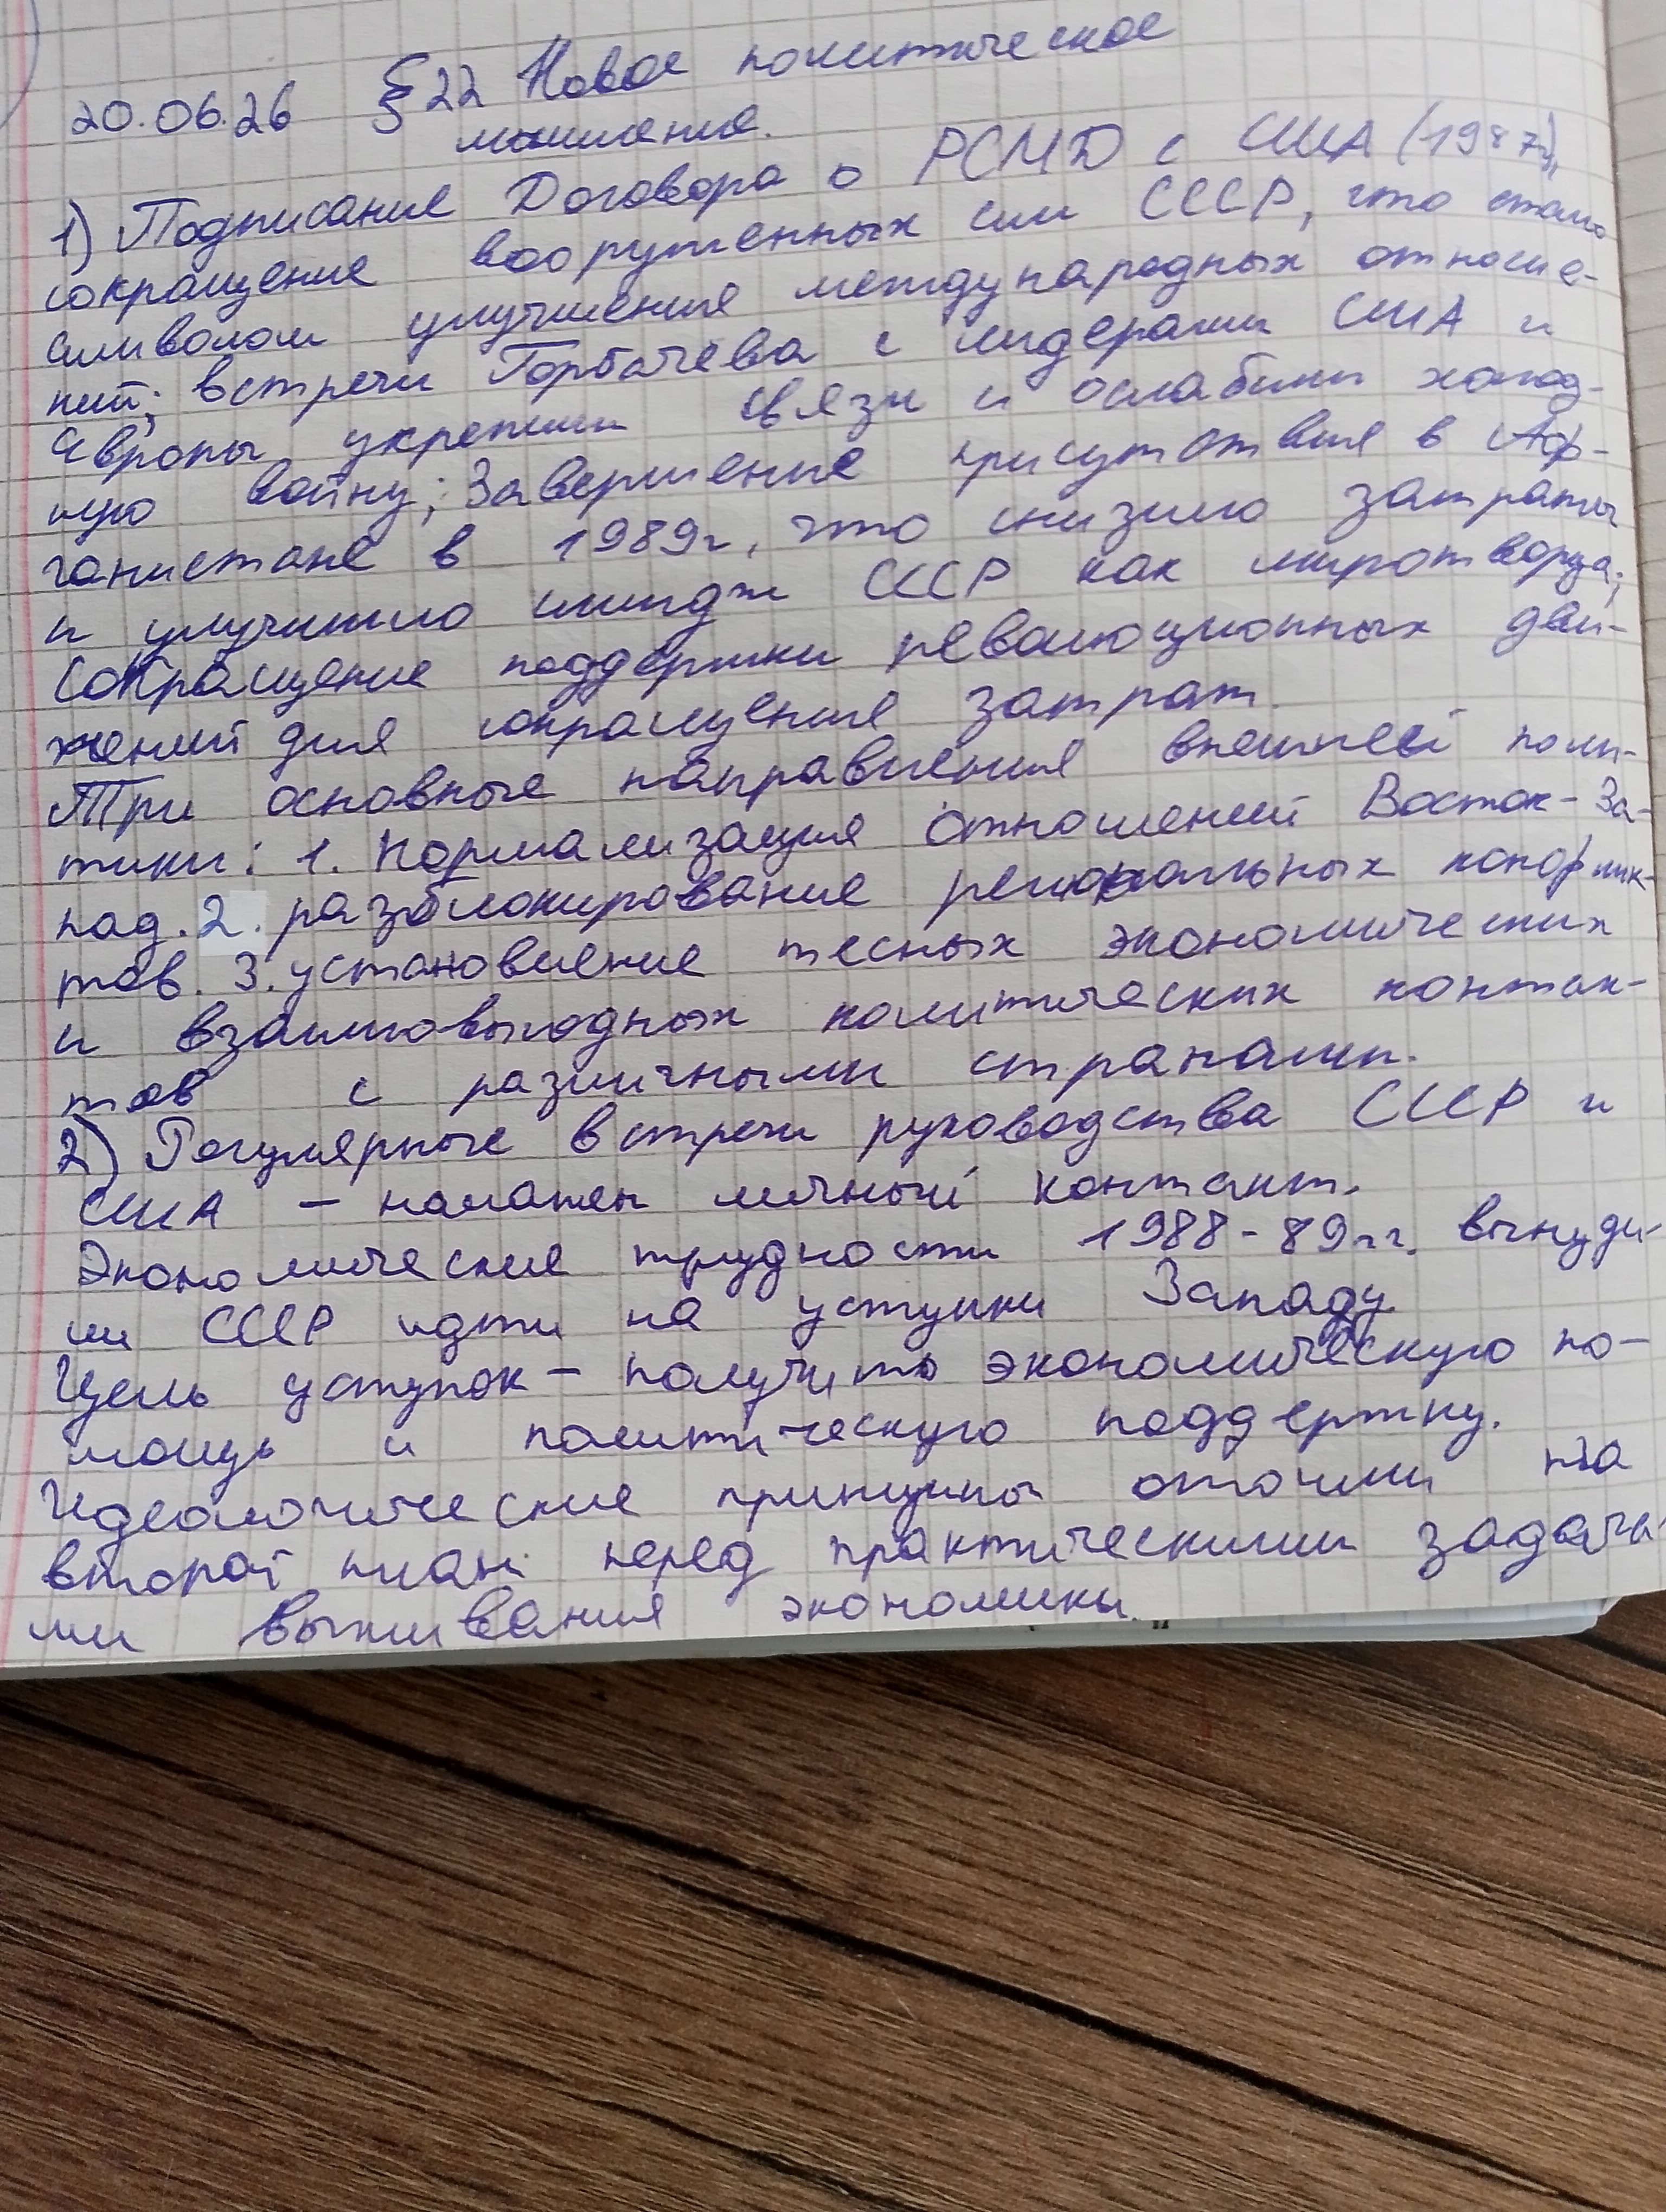 20.06.26 §22 Новое политическое
мышление.
1) Подписание Договора о РСМД с США (1987г),
сокращение вооруженных сил СССР, что стало
символом улучшения международных отноше-
ний; встречи Горбачёва с лидерами США и
Европы укрепили связи и ослабили холод-
ную войну; Завершение присутствия в Аф-
ганистане в 1989г, что снизило затраты
и улучшило имидж СССР как миротворца;
Сокращение поддержки революционных дви-
жений для сокращения затрат.
Три основные направления внешней поли-
тики: 1. Нормализация отношений Восток-За-
пад. 2. разблокирование региональных конфлик-
тов. 3. установление тесных экономических
и взаимовыгодных политических контак-
тов с различными странами.
2) Регулярные встречи руководства СССР и
США - налажен личный контакт.
Экономические трудности 1988-89гг. вынуди-
ли СССР идти на уступки Западу
Цель уступок - получить экономическую по-
мощь и политическую поддержку.
Идеологические принципы отошли на
второй план перед практическими задача-
ми выживания экономики.